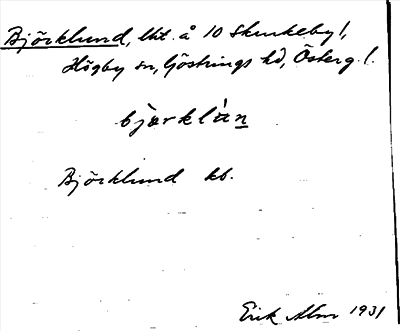 Björklund, lht. å 10 Skrukeby l,
Högby sn, Göstrings hd, Österg. l.
bjærklùn
Björklund kb.
Erik Alm 1931